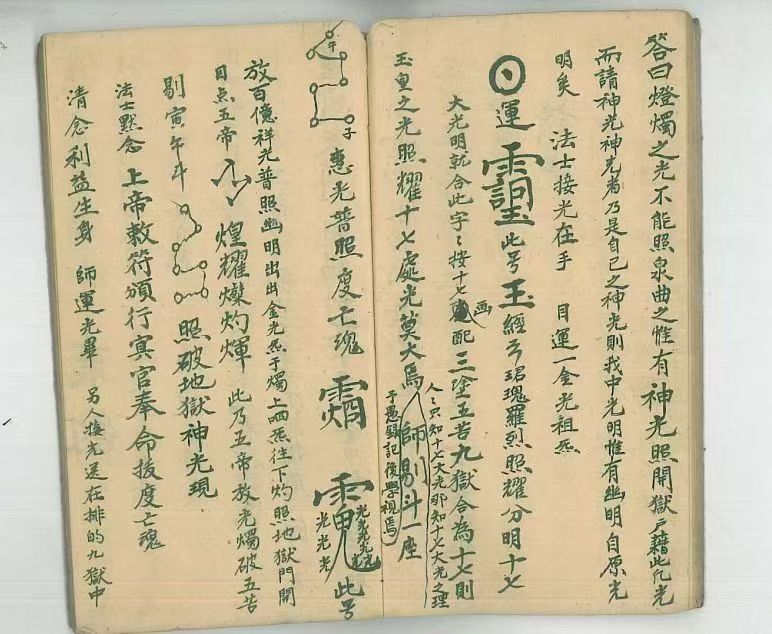 答曰燈燭之光不能照泉曲之惟有神光照開獄戶藉此凡光
而請神光神光者乃是自己之神光則我中光明惟有幽明自原光
明矣 法士接光在手 目運一金光祖炁
運 此号玉經云珺瑰羅烈照耀分明十七
大光明就合此字〻按十七画配三塗五苦九獄合為十七則
人〻只知十七大光那知十七大光之理
玉皇之光照耀十七處光莫大焉 師剔斗一座
予愚錄記後學視焉
午 子 惠光普照度亡魂 此号
光光光光光
光光光
放百億祥光普照幽明出出金光炁于燭上哂炁往下灼照地獄門開
目点五帝 煌耀爍灼煇 此乃五帝放光燭破五苦
剔寅午斗 照破地獄神光現
法士默念 上帝敕符頒行冥官奉命拔度亡魂
清念利益生身 師運光畢 另人接光送在排的九獄中